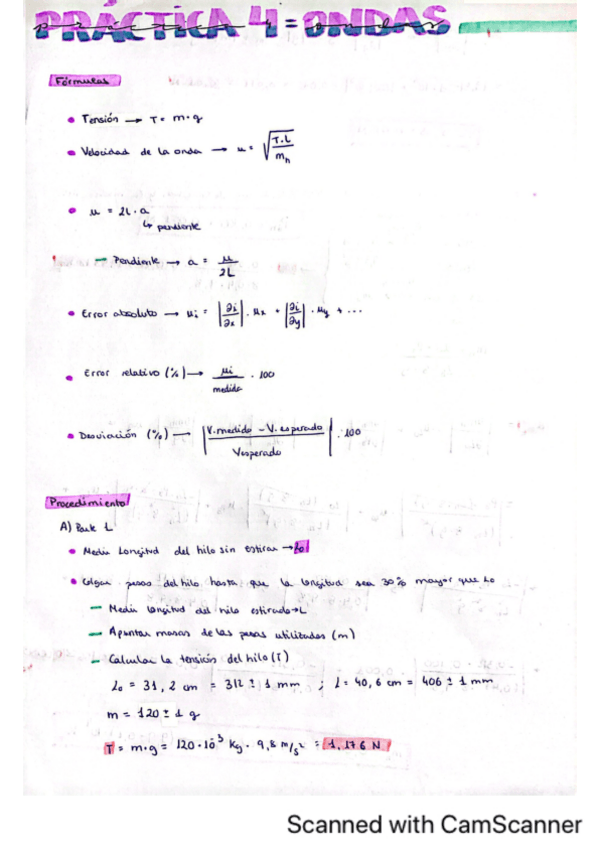 PRÁCTICA 4 = ONDAS
Fórmulas
• Tensión → T = m·g
• Velocidad de la onda → u = √(T·L / mₕ)
• u = 2L · a
↳ pendiente
– Pendiente → a = u / 2L
• Error absoluto → uᵢ = |∂i/∂x| · uₓ + |∂i/∂y| · u_y + ...
• Error relativo (%) → uᵢ / medida · 100
• Desviación (%) → |V. medido - V. esperado / V esperado| · 100
Procedimiento
A) Park 1
• Medir Longitud del hilo sin estirar → L₀
• Colgar pesas del hilo hasta que la longitud sea 30% mayor que L₀
– Medir longitud del hilo estirado → L
– Apuntar masas de las pesas utilizadas (m)
– Calcular la tensión del hilo (T)
L₀ = 31,2 cm = 312 ± 1 mm ; L = 40,6 cm = 406 ± 1 mm
m = 120 ± 1 g
T = m·g = 120·10⁻³ Kg · 9,8 m/s² = 1,176 N
Scanned with CamScanner